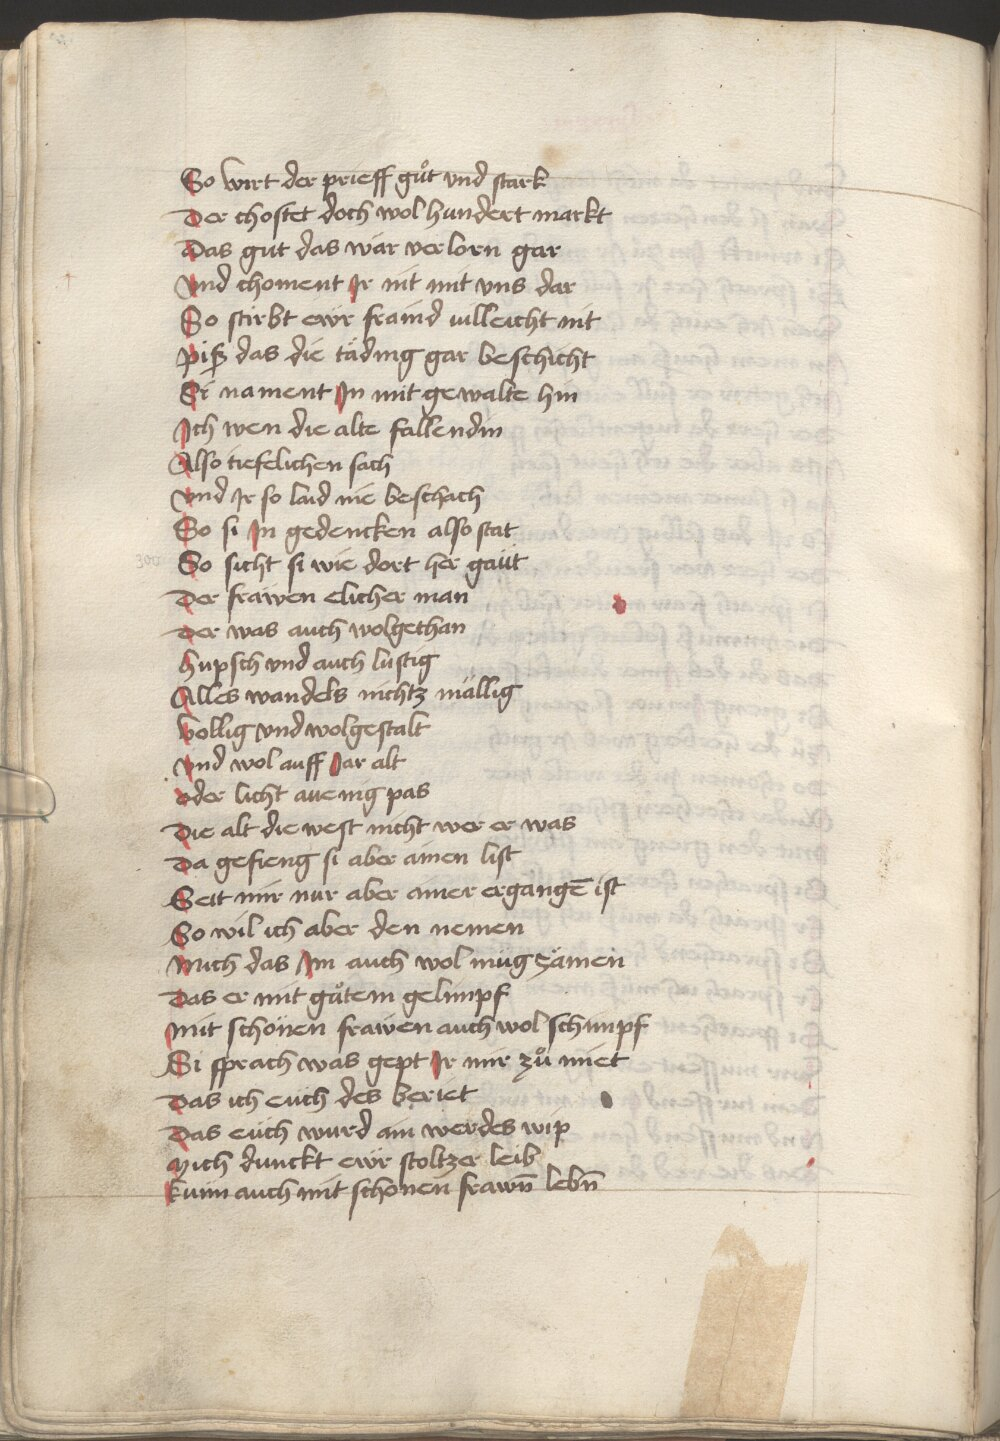 So wirt der prieff gůt vnd stark
Der chostet doch wol hundert markt
Das gut das wär verlorn gar
Vnd choment Ir nit mit vns dar
So stirbt ewr fraind villeicht nit
Piß das die täding gar beschicht
Si nament In mit gewalte hin
Ich wen die alte fallendin
Also tiefelichen sach
Vnd Ir so laid nie beschach
So si In gedencken also stat
300
So sicht si wie dort her gaüt
Der frawen elicher man
Der was auch wolgethan
Hupsch vnd auch lustig
Alles wandels nichtz mällig
Vollig vnd wolgestalt
Vnd wol auff Jar alt
Oder licht auenig pas
Die alt die west nicht wer er was
Da gefieng si aber ainen list
Seit mir nur aber ainer ergangē ist
So wil ich aber den nemen
Mich das Im auch wol müg zämen
Das er mit gůtem gelimpf
Mit schönen frawen auch wol schimpf
Si sprach was gept Ir mir zů miet
Das ich euch des beriet
Das eüch wurd ain werdes wip
Mich dunckt ewr stoltzer leib
Kunn auch mit schonen frawn̄ lebn̄